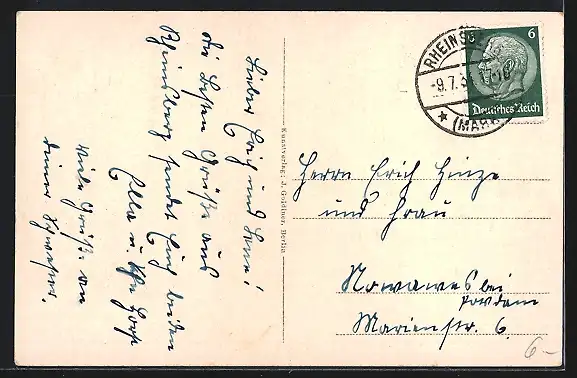 Lieber Erich und Lene!
Die besten Grüße aus
Rheinsberg sendet Euch beiden
Ella u.
Viele Grüße an
deine Schwester.
Kunstverlag: J. Goldiner, Berlin
RHEINSB
-9.7.3 17-18
* (MARK
6
Deutsches Reich
Herrn Erich Hinze
und Frau
Nowawes bei
Potsdam
Marienstr. 6.
6-